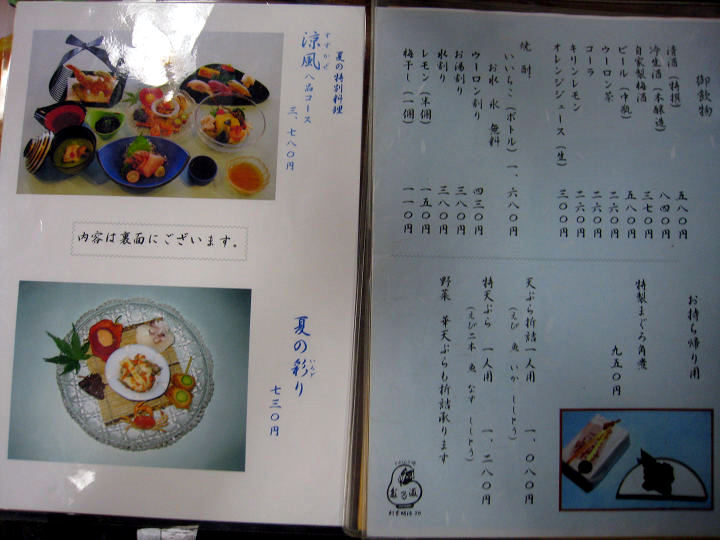 夏の特別料理
すずかぜ
涼風 八品コース
三、七八〇円
内容は裏面にございます。
夏の彩り
いろど
七三〇円
御飲物
清酒(特撰) 五八〇円
冷生酒(本醸造) 八四〇円
自家製梅酒 三七〇円
ビール(中瓶) 五八〇円
ウーロン茶 二六〇円
コーラ 二六〇円
キリンレモン 二六〇円
オレンジジュース(生) 三〇〇円
焼酎
いいちこ(ボトル) 一、六八〇円
お水 氷 無料
ウーロン割り 四三〇円
お湯割り 三八〇円
水割り 三八〇円
レモン(半個) 一五〇円
梅干し(一個) 一一〇円
お持ち帰り用
特製まぐろ角煮
九五〇円
天ぷら折詰一人用 一、〇八〇円
(えび 魚 いか ししとう)
特天ぷら 一人用 一、二八〇円
(えび二本 魚 なす ししとう)
野菜 単天ぷらも折詰承ります